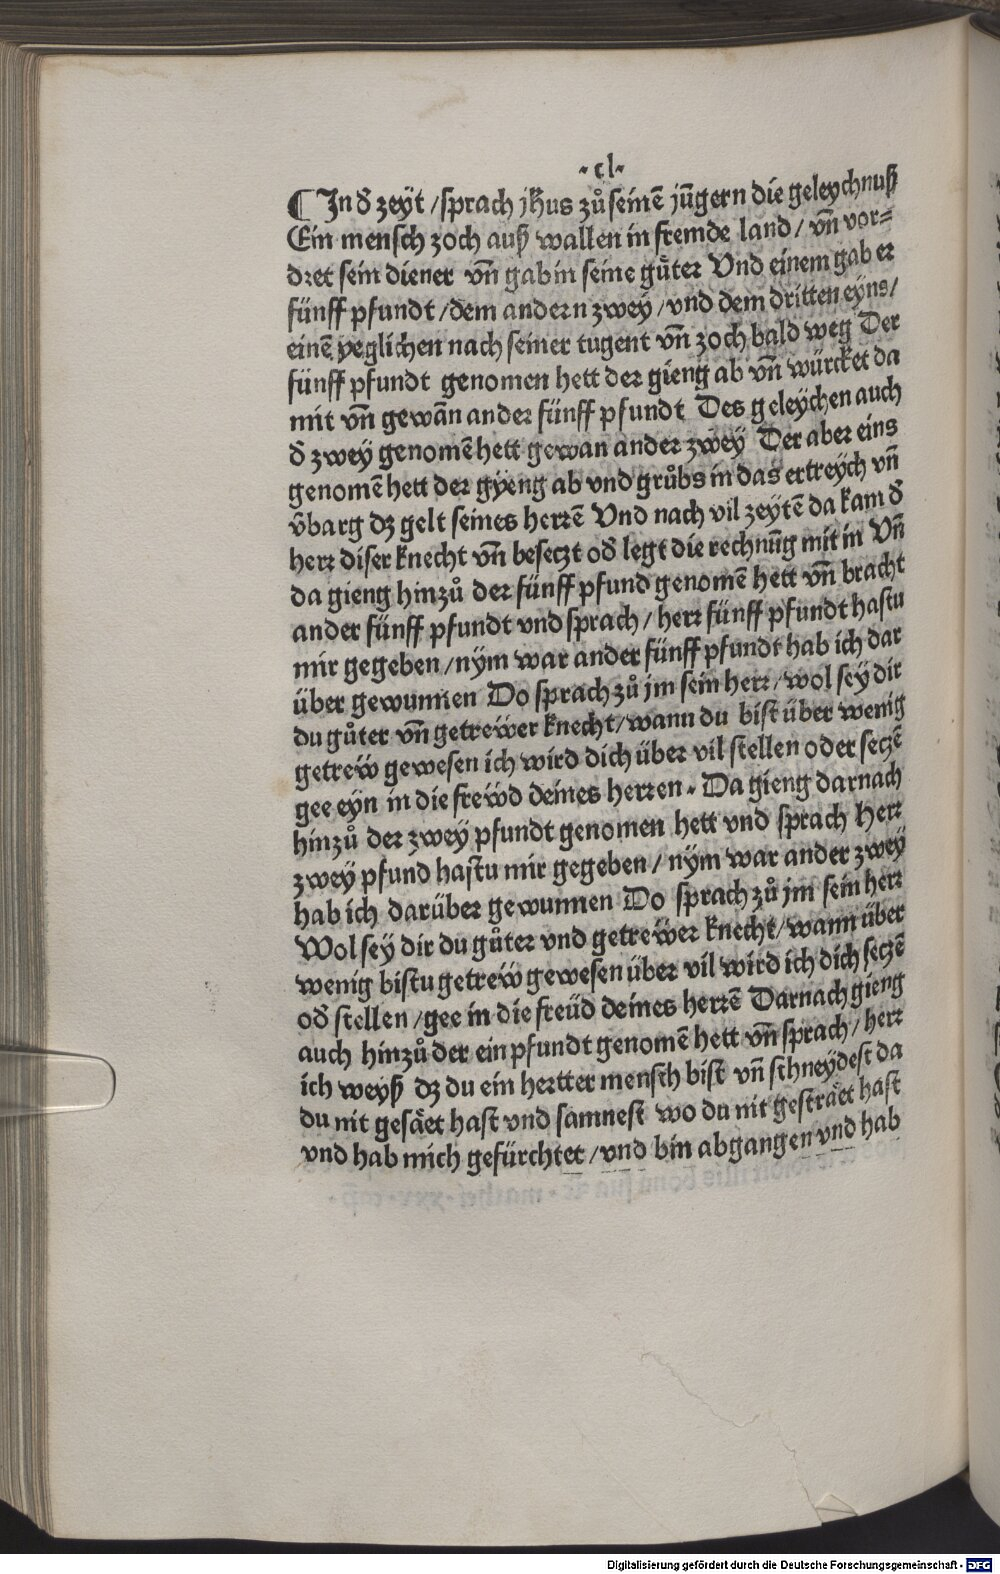 ·cl·
¶ In d̕ zeyt / sprach jh̄us zů seinē jūgern die geleychnuß
Ein mensch zoch auß wallen in fremde land / vn̄ vor⸗
dret sein diener vn̄ gab in seine gůter Vnd einem gab er
fünff pfundt / dem andern zwey / vnd dem dritten eyns /
einē yeglichen nach seiner tugent vn̄ zoch bald weg Der
fünff pfundt genomen hett der gieng ab vn̄ würcket da
mit vn̄ gewān ander fünff pfundt Des geleychen auch
d̕ zwey genomē hett gewan ander zwey Der aber eins
genomē hett der gyeng ab vnd grůbs in das ertreych vn̄
v̄barg dz gelt seines herrē Vnd nach vil zeytē da kam d̕
herr diser knecht vn̄ beseczt od̕ legt die rechnūg mit in Vn̄
da gieng hinzů der fünff pfund genomē hett vn̄ bracht
ander fünff pfundt vnd sprach / herr fünff pfundt hastu
mir gegeben / nym war ander fünff pfundt hab ich dar
über gewunnen Do sprach zů jm sein herr / wol sey dir
du gůter vn̄ getreẅer knecht / wann du bist über wenig
getreẅ gewesen ich wird dich über vil stellen oder seczē
gee eyn in die freẅd deines herren · Da gieng darnach
hinzů der zwey pfundt genomen hett vnd sprach Herr
zwey pfund hastu mir gegeben / nym war ander zwey
hab ich darüber gewunnen Do sprach zů jm sein herr
Wol sey dir du gůter vnd getreẅer knecht / wann über
wenig bistu getreẅ gewesen über vil wird ich dich seczē
od̕ stellen / gee in die freüd deines herrē Darnach gieng
auch hinzů der ein pfundt genomē hett vn̄ sprach / herr
ich weyß dz du ein hertter mensch bist vn̄ schneydest da
du nit gesäet hast vnd samnest wo du nit gesträet hast
vnd hab mich gefürchtet / vnd bin abgangen vnd hab
Digitalisierung gefördert durch die Deutsche Forschungsgemeinschaft - DFG